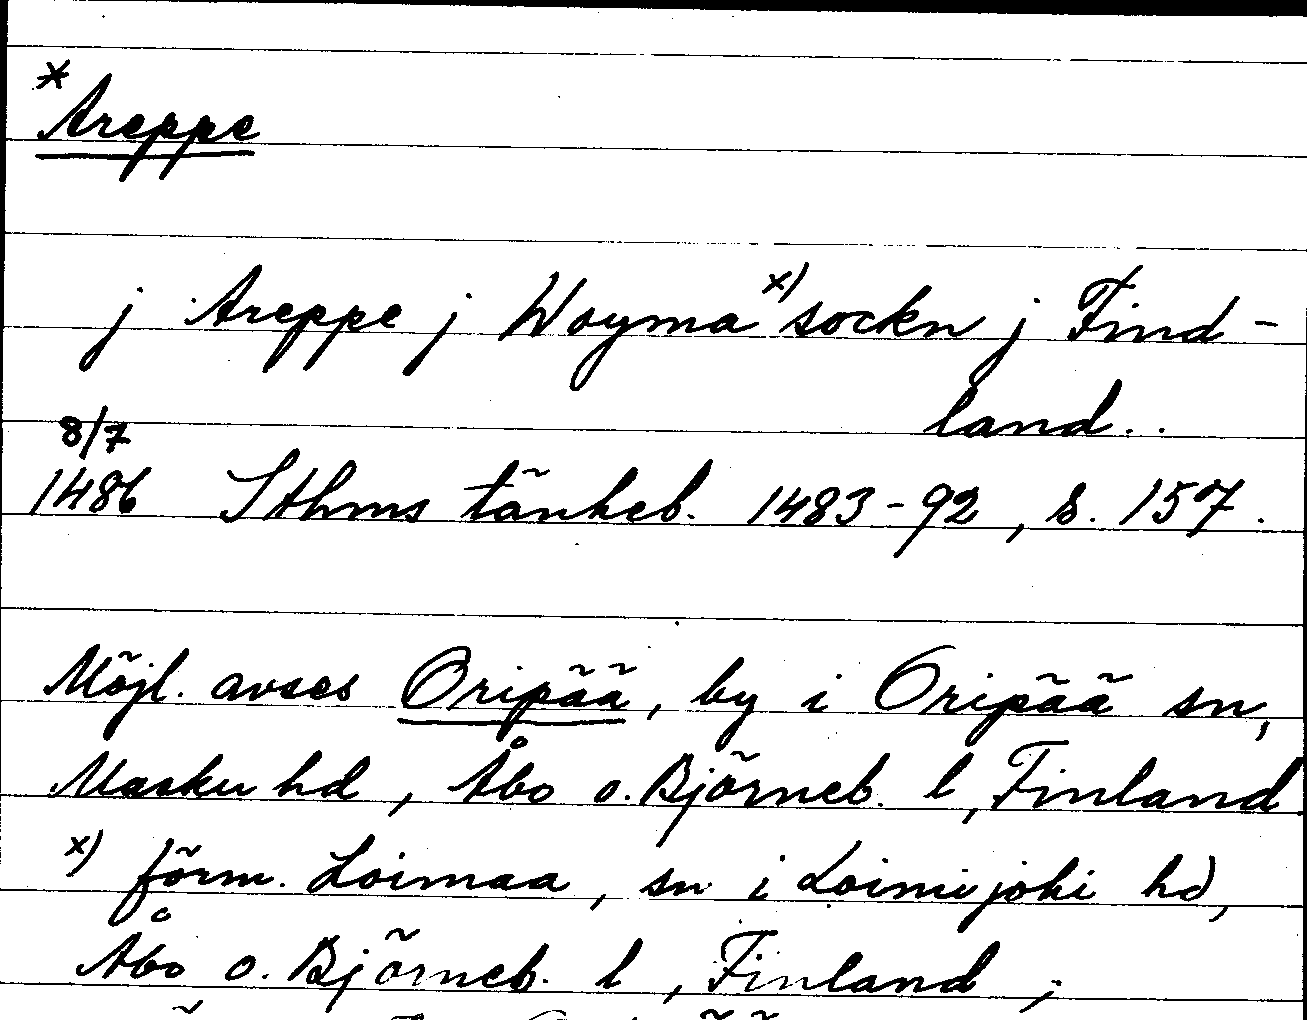 *Areppe
j Areppe j Woyma x) sockn j Find-
land..
8/7
1486 Sthms tänkeb. 1483-92, s. 157.
Möjl. avses Oripää, by i Oripää sn,
Masku hd, Åbo o. Björneb. l, Finland
x) förm. Loimaa, sn i Loimijoki hd,
Åbo o. Björneb. l, Finland;